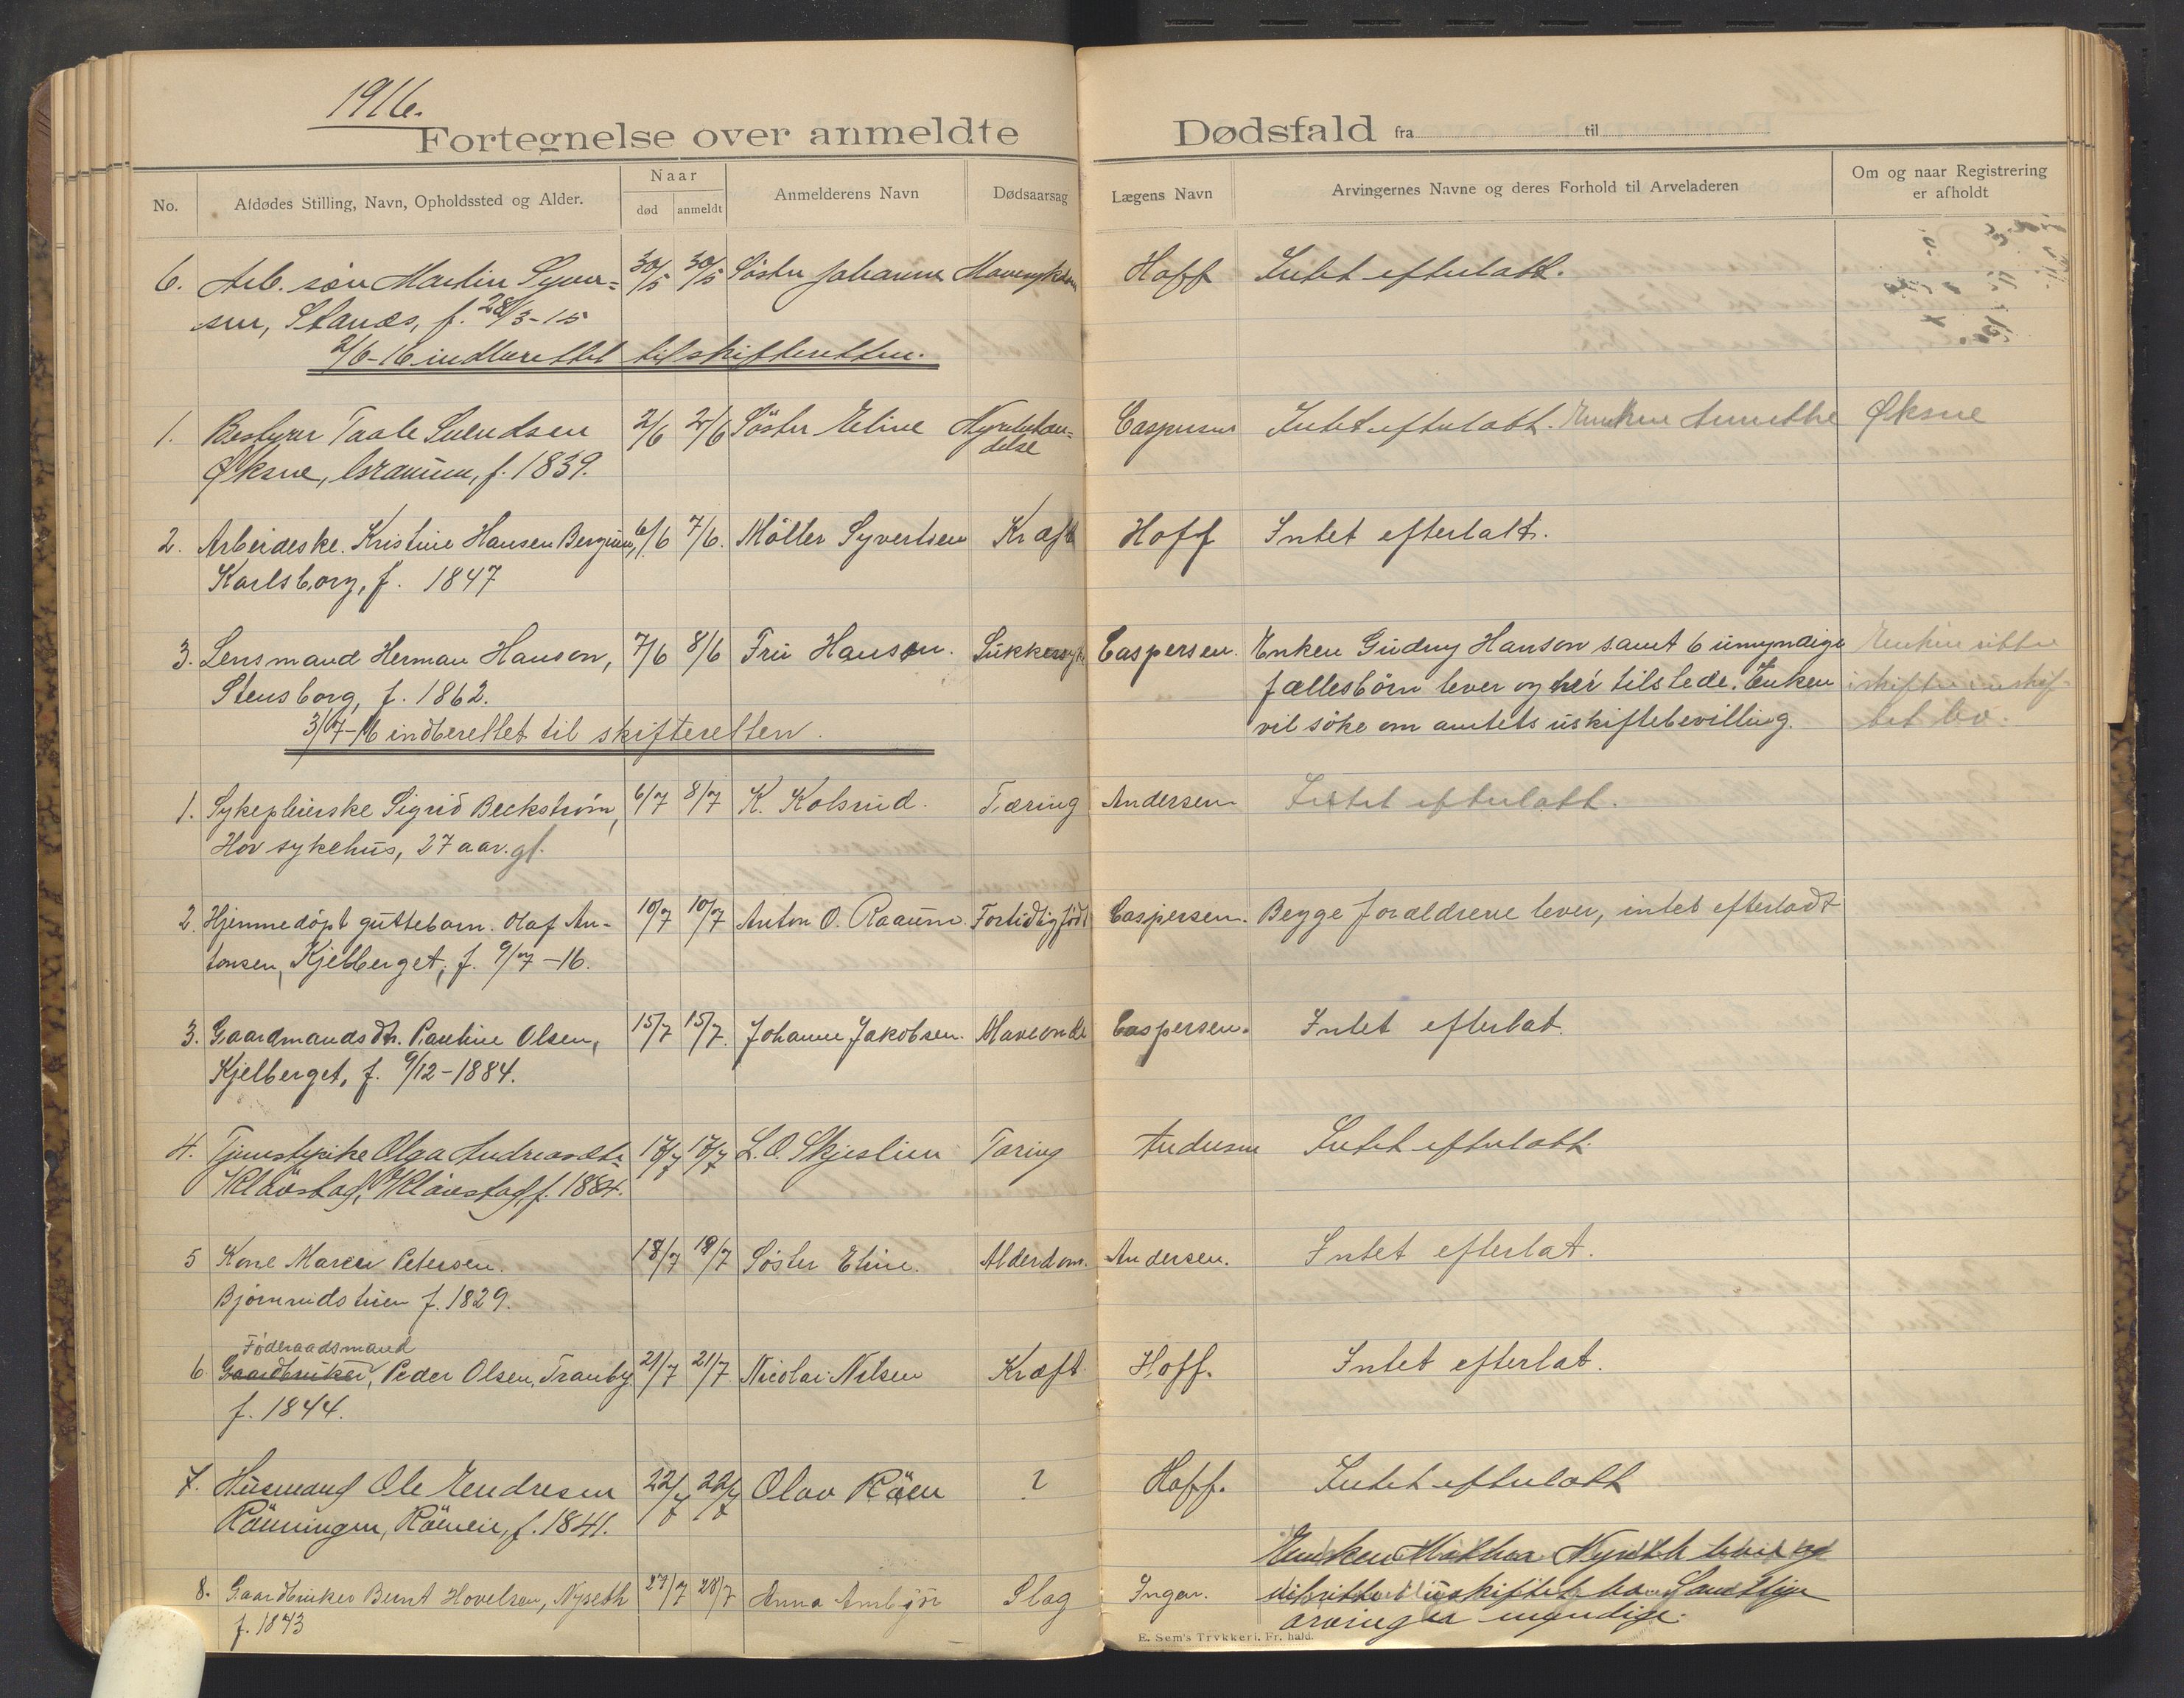 1916.
Fortegnelse over anmeldte Dødsfald fra til
No.
Afdødes Stilling, Navn, Opholdssted og Alder.
Naar
død
anmeldt
Anmelderens Navn
Dødsaarsag
Lægens Navn
Arvingernes Navne og deres Forhold til Arveladeren
Om og naar Registrering
er afholdt
6. Arb. søn Martin Syver= 30/5 30/5 Søster Johanne Hoff Intet efterlatt.
sen, f. 28/3-15
2/6-16 indberettet til skifteretten.
1. Bestyrer Taale Svendsen 2/6 2/6 Søster Eline Caspersen Intet efterlatt. Enken Annethe Øksne
Øksne, f. 1839. delse
2. Arbeideske. Kristine Hansen 6/6 7/6. Møller Syvertsen Kræft Hoff Intet efterlatt.
Karlsborg, f. 1847
3. Lensmand Herman Hanson, 7/6 8/6 Fru Hanson. Sukkersyke Caspersen. Enken Gudny Hanson samt 6 umyndige Enken sitter
Stensborg, f. 1862. fællesbörn lever og her tilstede. Enken i skiftet uskif-
3/7-16 indberettet til skifteretten. vil söke om amtets uskiftebevilling. tet bo.
1. Sykepleierske Sigrid Beckstrøm, 6/7 8/7 K. Kolsrud. Tæring Andersen Intet efterlatt.
Hov sykehus, 27 aar. gl.
2. Hjemmedøpt guttebarn. Olaf An- 10/7 10/7 Anton O. Raaum. Fortidlig født Caspersen. Begge forældrene lever, intet efterladt
tonsen, Kjelberget, f. 9/7-16.
3. Gaardmandsdtr. Pauline Olsen, 15/7 15/7. Johanne Jakobsen. Maveonde Caspersen. Intet efterlat.
Kjelberget, f. 9/12-1884.
4. Tjenestepike Olga Andreasdtr= 17/7 17/7 L. O. Skjeslien Tæring Andersen Intet efterlatt.
Kløvstad, Kløvstad, f. 1884.
5 Kone Maren Petersen. 18/7 19/7 Søster Eline. Alderdom. Andersen. Intet efterlat.
Bjørnrudstuen f. 1829.
Føderaadsmand
6 Gaardbruker, Peder Olsen, Tranby 21/7 21/7 Nicolai Nilsen Kræft Hoff. Intet efterlat.
f. 1844.
7. Husmand Ole Endresen 22/7 22/7 Olav Röen ? Hoff. Intet efterlatt
Rönningen, Röneie, f. 1841.
Enken Mathea Nyseth lever og
8. Gaardbruker Bernt Hovelsen, Nyseth 27/7 28/7 Anna Slag Ingar. uskiftet bo
f. 1843 arvinger myndige.
E. Sem's Trykkeri, Fr. hald.